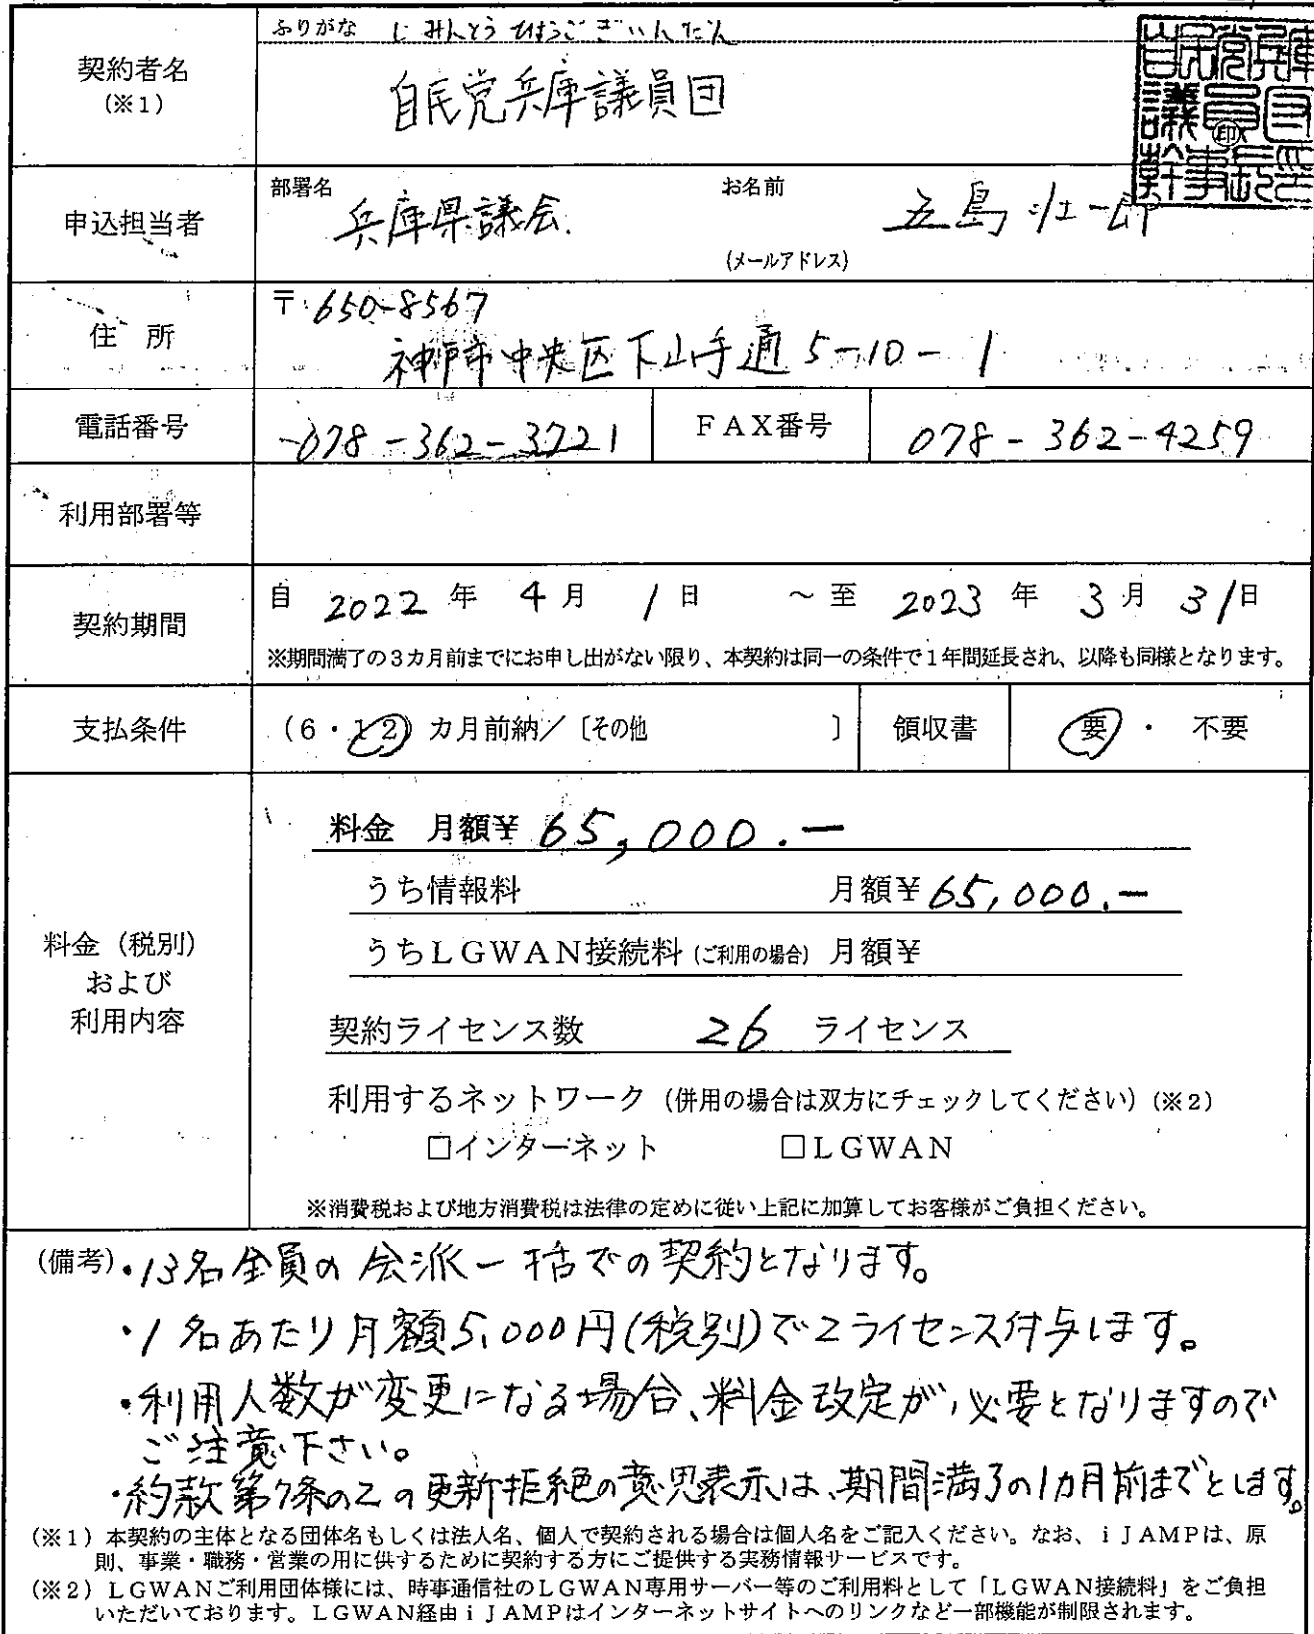 ふりがな じみんとうひょうごぎいんだん
契約者名
(※1)
自民党兵庫議員団
自民党兵庫
議員団
幹事長之印
申込担当者
部署名
お名前
兵庫県議会
五島壮一郎
(メールアドレス)
住 所
〒650-8567
神戸市中央区下山手通5-10-1
電話番号
078-362-3721
FAX番号
078-362-4259
利用部署等
契約期間
自 2022 年 4 月 1 日 ~ 至 2023 年 3 月 31日
※期間満了の3カ月前までにお申し出がない限り、本契約は同一の条件で1年間延長され、以降も同様となります。
支払条件
(6・12) カ月前納/〔その他 〕
領収書
要 ・ 不要
料金(税別)
および
利用内容
料金 月額¥ 65,000.-
うち情報料 月額¥65,000.-
うちLGWAN接続料(ご利用の場合) 月額¥
契約ライセンス数 26 ライセンス
利用するネットワーク(併用の場合は双方にチェックしてください)(※2)
□インターネット □LGWAN
※消費税および地方消費税は法律の定めに従い上記に加算してお客様がご負担ください。
(備考)・13名全員の会派一括での契約となります。
・1名あたり月額5,000円(税別)で2ライセンス付与します。
・利用人数が変更になる場合、料金改定が必要となりますので
ご注意下さい。
・約款第7条の2の更新拒絶の意思表示は、期間満了の1カ月前までとします。
(※1)本契約の主体となる団体名もしくは法人名、個人で契約される場合は個人名をご記入ください。なお、iJAMPは、原
則、事業・職務・営業の用に供するために契約する方にご提供する実務情報サービスです。
(※2)LGWANご利用団体様には、時事通信社のLGWAN専用サーバー等のご利用料として「LGWAN接続料」をご負担
いただいております。LGWAN経由iJAMPはインターネットサイトへのリンクなど一部機能が制限されます。